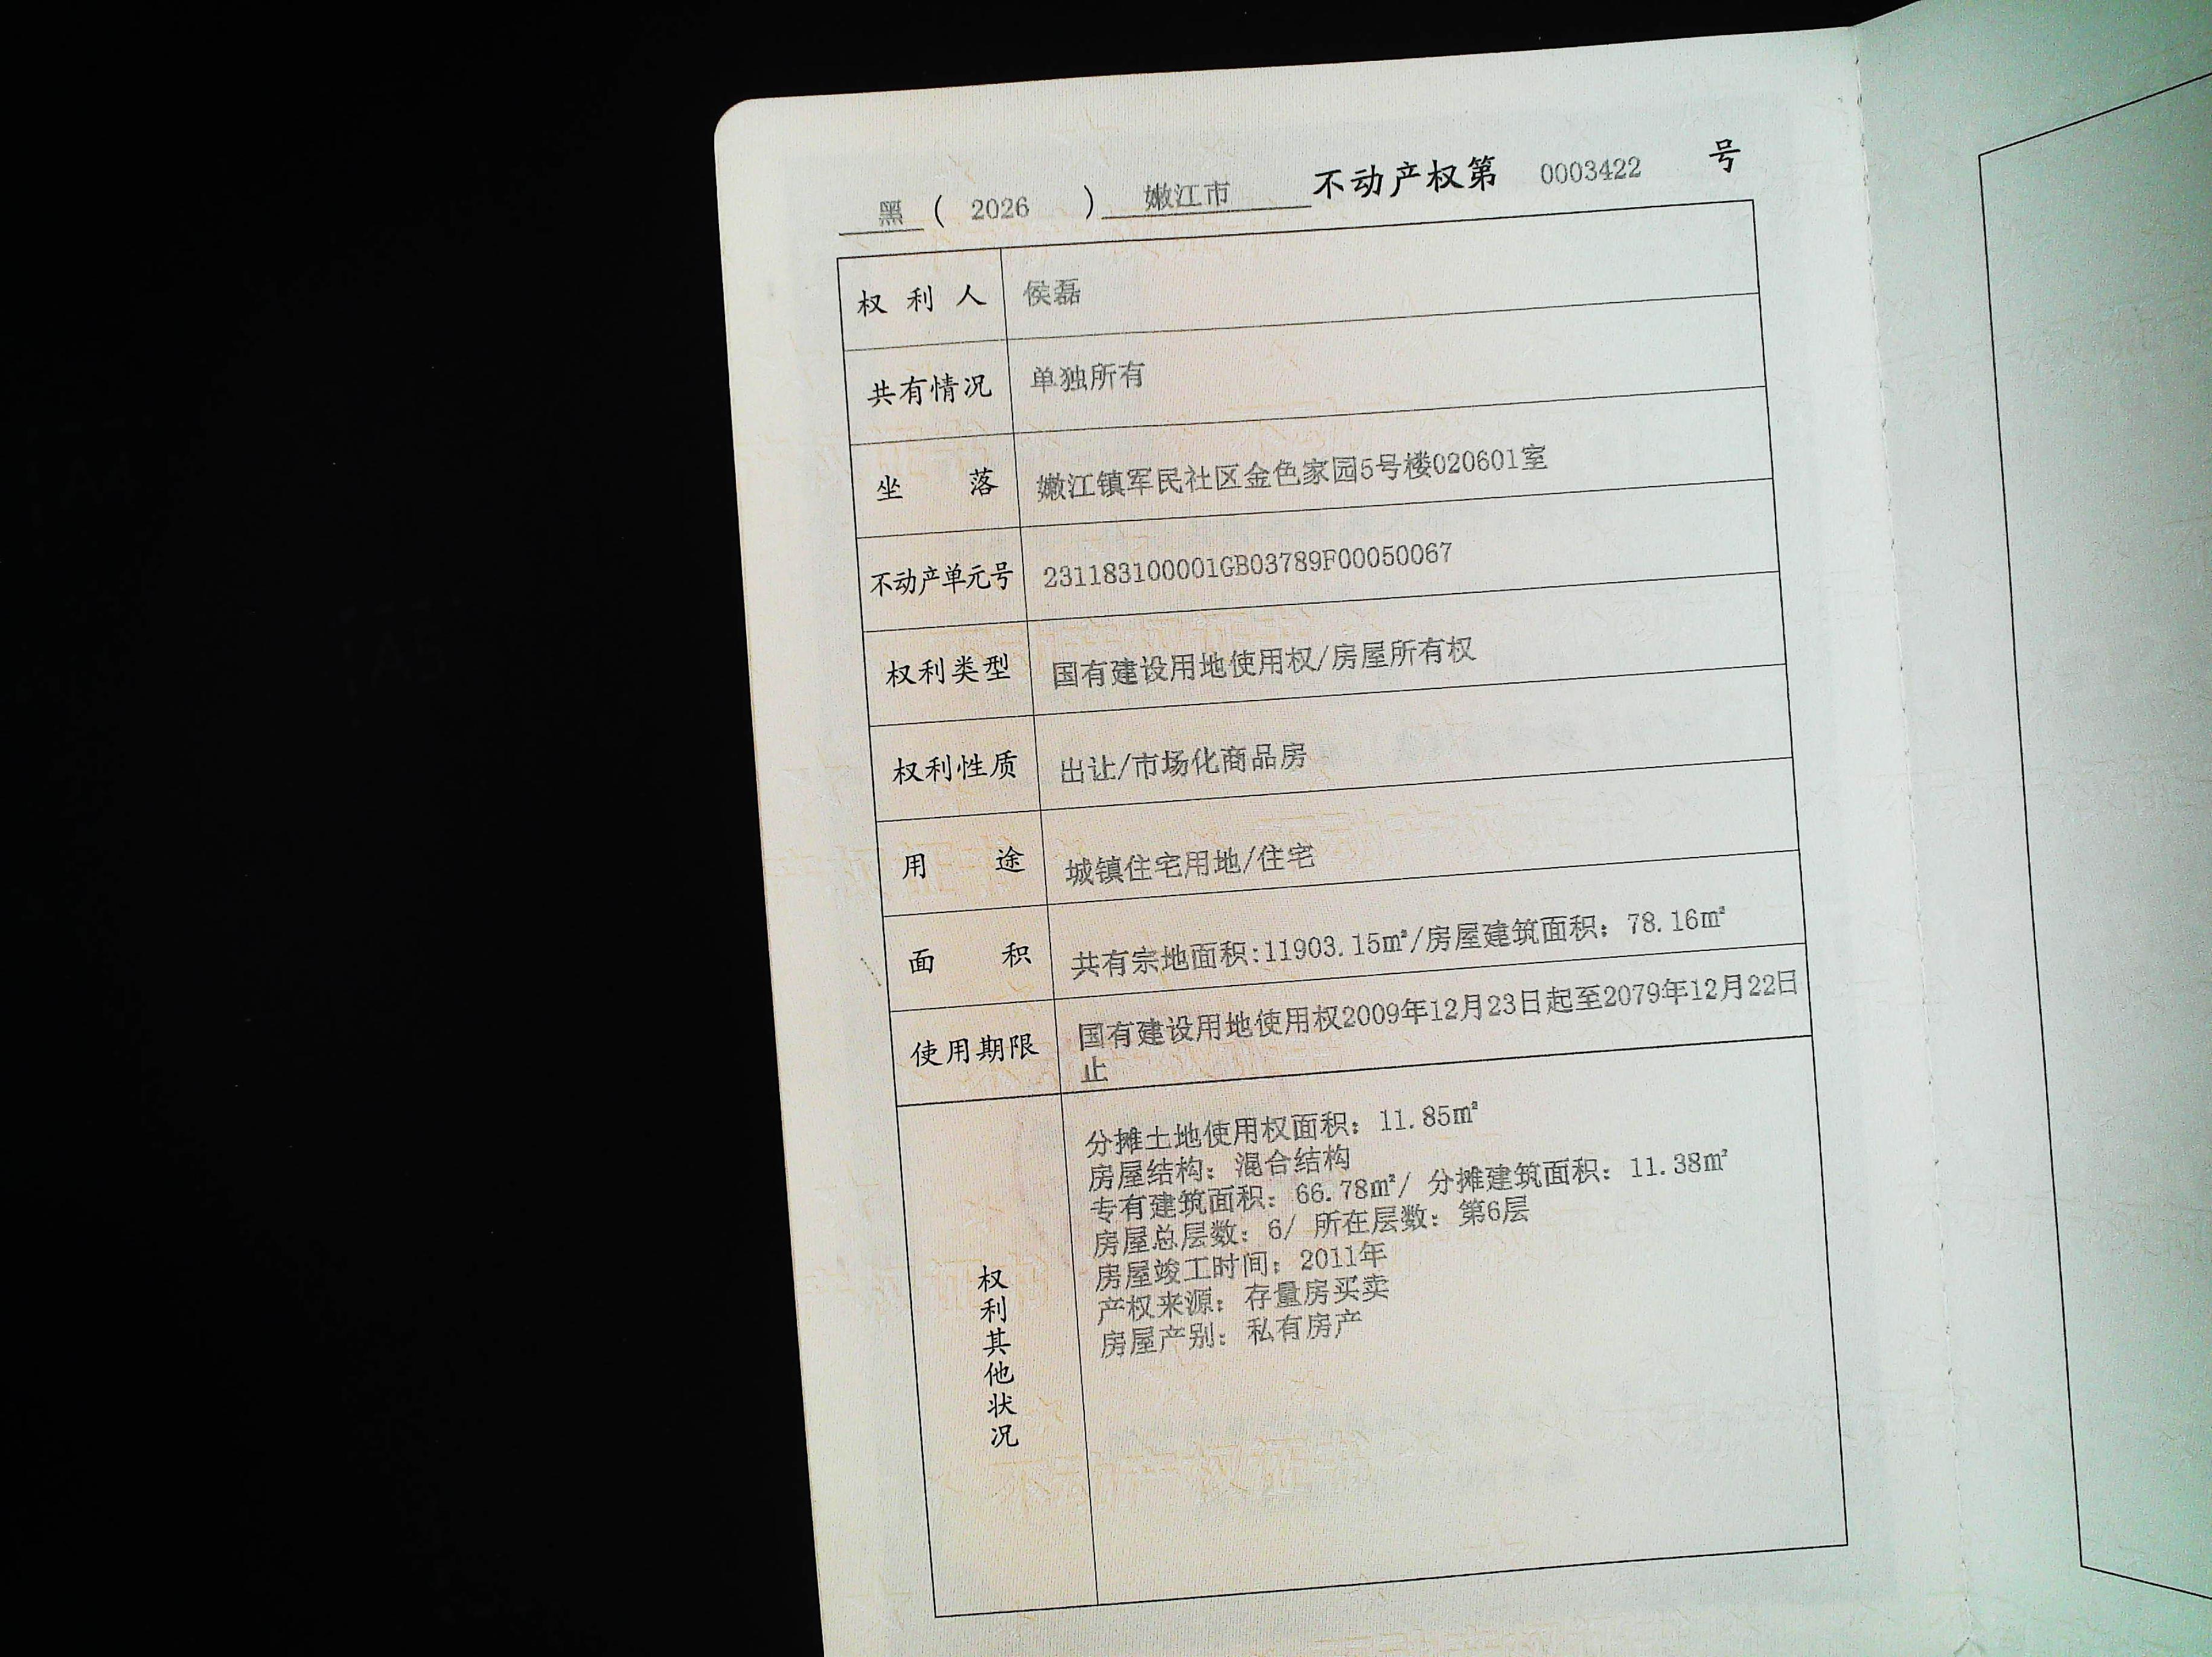 黑 ( 2026 ) 嫩江市 不动产权第 0003422 号
权利人 侯磊
共有情况 单独所有
坐落 嫩江镇军民社区金色家园5号楼020601室
不动产单元号 231183100001GB03789F00050067
权利类型 国有建设用地使用权/房屋所有权
权利性质 出让/市场化商品房
用途 城镇住宅用地/住宅
面积 共有宗地面积:11903.15㎡/房屋建筑面积：78.16㎡
使用期限 国有建设用地使用权2009年12月23日起至2079年12月22日
止
权利其他状况
分摊土地使用权面积：11.85㎡
房屋结构：混合结构
专有建筑面积：66.78㎡/ 分摊建筑面积：11.38㎡
房屋总层数：6/ 所在层数：第6层
房屋竣工时间：2011年
产权来源：存量房买卖
房屋产别：私有房产